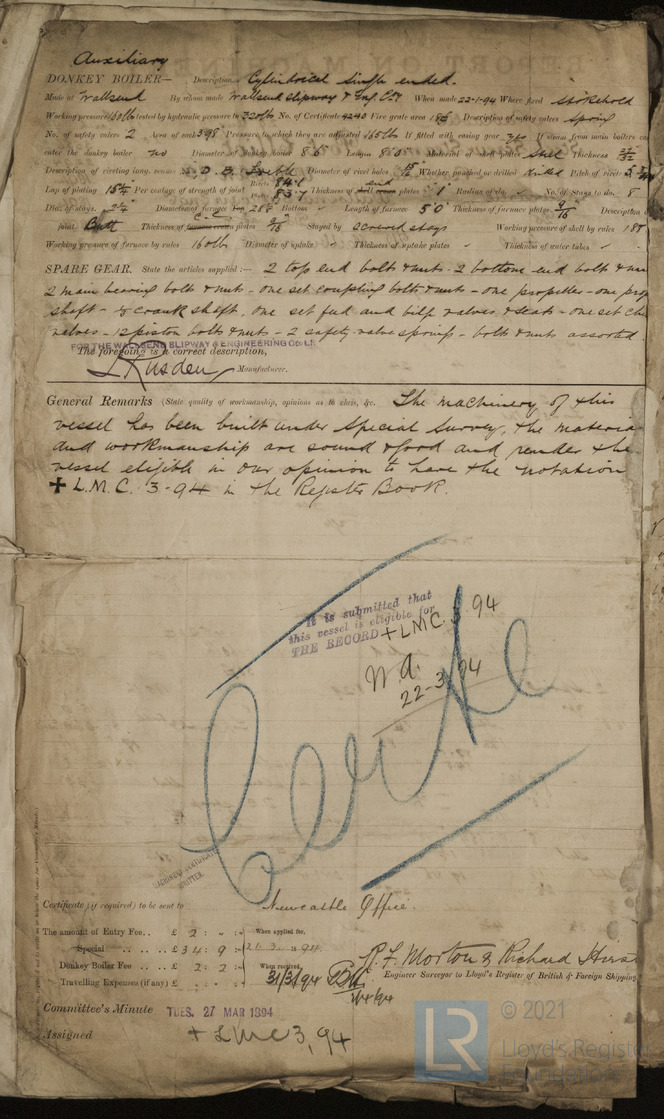 Auxiliary
DONKEY BOILER— Description Cylindrical Single ended.
Made at Wallsend By whom made Wallsend Slipway & Eng. Coy When made 22-1-94 Where fixed stokehold
Working pressure 160 lb tested by hydraulic pressure to 320 lb No. of Certificate 4240 Fire grate area Description of safety valves Spring
No. of safety valves 2 Area of each 5.98 Pressure to which they are adjusted 165 lb If fitted with easing gear yes If steam from main boilers ca
enter the donkey boiler no Diameter of donkey boiler 8' 6" Length Material of shell plates Steel Thickness 23/32
Description of riveting long. seams D. B. S. Treble Diameter of rivet holes Whether punched or drilled drilled Pitch of rivets
Lap of plating Per centage of strength of joint Rivets 84.1 Plates 83.7 Thickness of end plates 1" Radius of do. No. of Stays to do. 8
Dia. of stays Diameter of furnace Bottom Length of furnace 5' 0" Thickness of furnace plates 9/16 Description
joint Butt Thickness of plates 9/16 Stayed by screwed stays Working pressure of shell by rules
Working pressure of furnace by rules 160 lb Diameter of uptake Thickness of uptake plates Thickness of water tubes
SPARE GEAR. State the articles supplied:— 2 top end bolts & nuts - 2 bottom end bolts & nu
2 main bearing bolts & nuts - one set coupling bolts & nuts - one propeller - one prop
shaft - ½ crank shaft, one set fud and bilge valves & seats - one set ch
valves - 12 piston bolts & nuts - 2 safety valve springs - bolts & nuts assorted.
FOR THE WALLSEND SLIPWAY & ENGINEERING Co LD.
The foregoing is a correct description,
Rusden Manufacturer.
General Remarks (State quality of workmanship, opinions as to class, &c. The machinery of this
vessel has been built under Special Survey, the materia
and workmanship are sound & good and render the
vessel eligible in our opinion to have the notation
✠ L.M.C. 3-94 in the Register Book.
It is submitted that
this vessel is eligible for
THE RECORD + LMC 3 94
22-3-94
Certificate (if required) to be sent to Newcastle Office.
The amount of Entry Fee.. £ 2 : - : - When applied for,
Special .. .. .. £ 34 : 9 : - 21. 3. 1894
Donkey Boiler Fee .. .. £ 2 : 2 : - When received,
Travelling Expenses (if any) £ : : 31/3/94
R. F. Morton & Richard Hirs
Engineer Surveyor to Lloyd's Register of British & Foreign Shipping
Committee's Minute TUES. 27 MAR 1894
Assigned + LMC 3, 94
LR © 2021
Lloyd's Register
Foundation